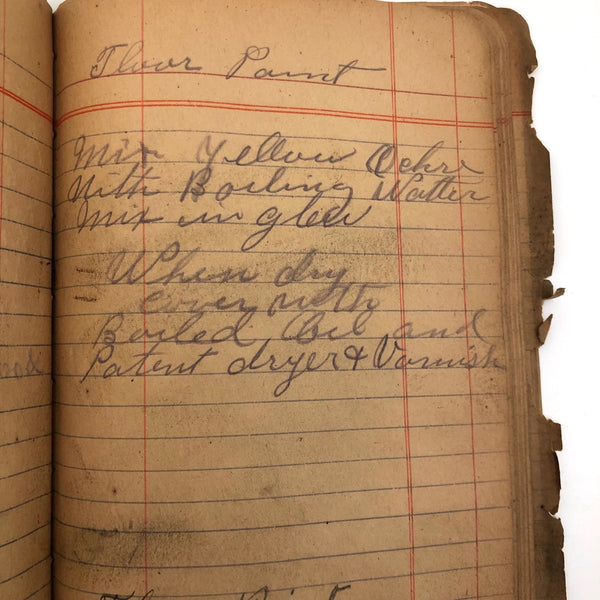 Floor Paint
Mix Yellow Ochre
With Boiling Watter
Mix in glew
When dry
cover with
Boiled Oil and
Patent dryer & Varnish